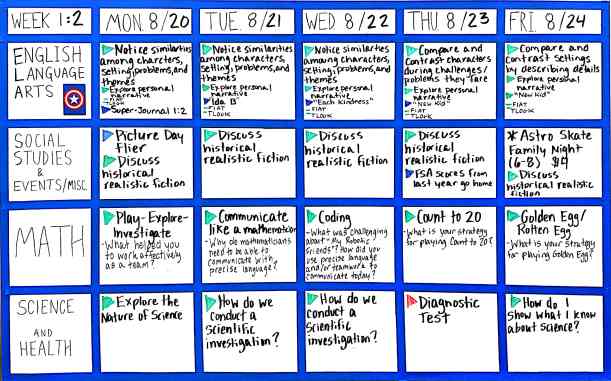 WEEK 1:2
MON. 8/20
TUE. 8/21
WED 8/22
THU. 8/23
FRI. 8/24
ENGLISH
LANGUAGE
ARTS
Notice similarities
among charcters,
setting, problems, and
themes
Explore personal
narrative
-FIAT
Super-Journal 1:2
Notice similarities
among characters,
setting, problems, and
themes
Explore personal
narrative
Ida B
-FIAT
TLOQIK
Notice similarities
among characters,
setting, problems, and
themes
Explore personal
narrative
"Each Kindness"
-FIAT
TLOQIK
Compare and
Contrast characters
during challenges/
problems they face
Explore personal
narrative
"New Kid"
-FIAT
Compare and
contrast settings
by describing details
Explore personal
narrative
"New Kid"
-FIAT
SOCIAL
STUDIES
&
EVENTS/MISC.
Picture Day
flier
Discuss
historical
realistic fiction
Discuss
historical
realistic fiction
Discuss
historical
realistic fiction
Discuss
historical
realistic fiction
FSA scores from
last year go home
* Astro Skate
Family Night
(6-8)
Discuss
historical realistic
fiction
MATH
Play-Explore-
Investigate
-What helped you
to work effectively
as a team?
Communicate
like a mathematician
-Why do mathematicians
need to be able to
communicate with
precise language?
Coding
-What was challenging
about "My Robotic
Friends"? How did you
use precise language
and/or teamwork to
communicate today?
Count to 20
-What is your strategy
for playing Count to 20?
Golden Egg/
Rotten Egg
-What is your strategy
for playing Golden Egg?
SCIENCE
AND
HEALTH
Explore the
Nature of Science
How do we
conduct a
scientific
investigation?
How do we
conduct a
scientific
investigation?
Diagnostic
Test
How do I
show what I know
about science?